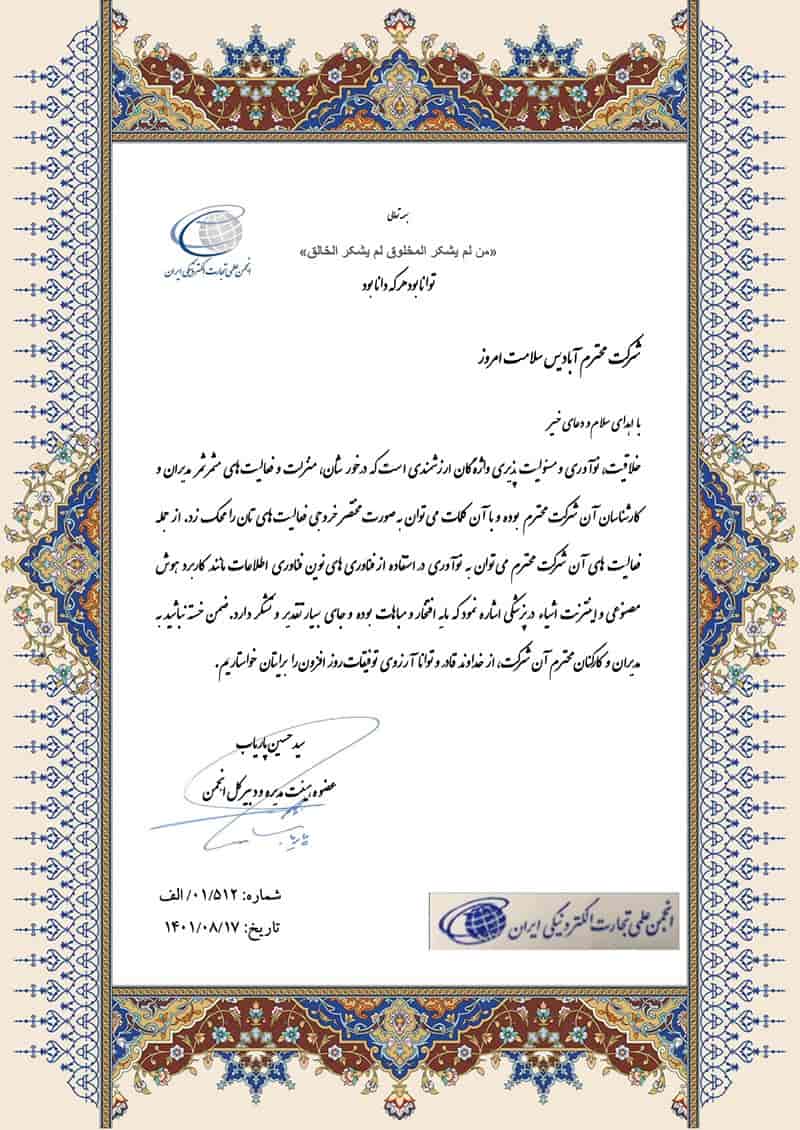 بسمه تعالی
«من لم یشکر المخلوق لم یشکر الخالق»
توانا بود هر که دانا بود
انجمن علمی تجارت الکترونیکی ایران
شرکت محترم آبادیس سلامت امروز
با اهدای سلام و دعای خیر
خلاقیت، نوآوری و مسئولیت پذیری واژگان ارزشمندی است که در خور شأن، منزلت و فعالیت‌های مثمرثمر مدیران و
کارشناسان آن شرکت محترم بوده و با آن کلمات می‌توان به صورت مختصر خروجی فعالیت‌های تان را محک زد. از جمله
فعالیت های آن شرکت محترم می‌توان به نوآوری در استفاده از فناوری های نوین فناوری اطلاعات مانند کاربرد هوش
مصنوعی و اینترنت اشیاء در پزشکی اشاره نمود که مایه افتخار و مباهات بوده و جای بسیار تقدیر و تشکر دارد. ضمن خسته نباشید به
مدیران و کارکنان محترم آن شرکت، از خداوند قادر و توانا آرزوی توفیقات روز افزون را برایتان خواستاریم.
سید حسین پاریاب
عضو هیئت مدیره و دبیر کل انجمن
شماره: ۰۱/۵۱۲/ الف
تاریخ: ۱۴۰۱/۰۸/۱۷
انجمن علمی تجارت الکترونیکی ایران